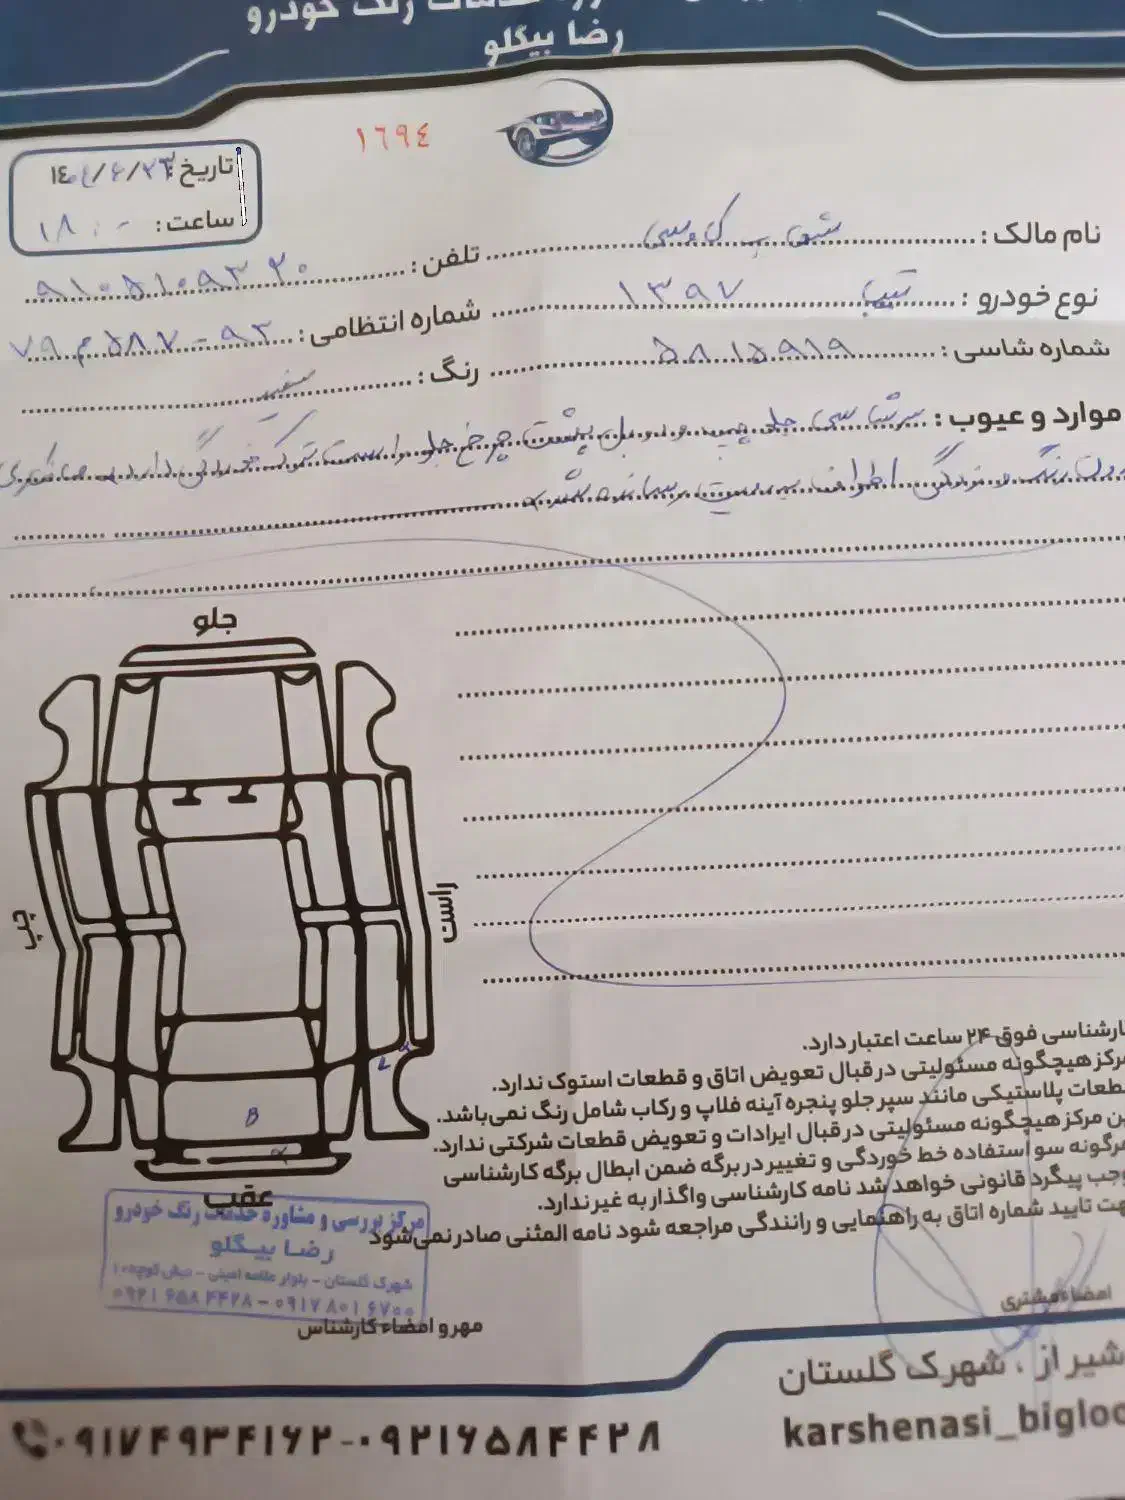 خدمات رنگ خودرو
رضا بیگلو
۱۶۹٤
تاریخ: ۱٤۰٤/۶/۲۳
ساعت: ۱۸:۰۰
نام مالک:
تلفن: ۹۱۰۵۱۰۹۳۲۰
نوع خودرو: تیبا ۱۳۹۷
شماره انتظامی: ۷۹ م ۵۸۷ - ۹۳
شماره شاسی: ۵۸۱۵۹۱۹
رنگ: سفید
موارد و عیوب: سر شاسی جلو چپ و دوبل پشت چرخ جلو راست ترک خوردگی دارد
رنگ و اطراف به رویت رسانده شد
جلو
چپ
راست
L
B
عقب
کارشناسی فوق ۲۴ ساعت اعتبار دارد.
مرکز هیچگونه مسئولیتی در قبال تعویض اتاق و قطعات استوک ندارد.
قطعات پلاستیکی مانند سپر جلو پنجره آینه فلاپ و رکاب شامل رنگ نمی‌باشد.
این مرکز هیچگونه مسئولیتی در قبال ایرادات و تعویض قطعات شرکتی ندارد.
هرگونه سو استفاده خط خوردگی و تغییر در برگه ضمن ابطال برگه کارشناسی
موجب پیگرد قانونی خواهد شد نامه کارشناسی واگذار به غیر ندارد.
جهت تایید شماره اتاق به راهنمایی و رانندگی مراجعه شود نامه المثنی صادر نمی‌شود
مرکز بررسی و مشاوره خدمات رنگ خودرو
رضا بیگلو
شهرک گلستان - بلوار علامه امینی - نبش کوچه ۱۰
۰۹۲۱۶۵۸۴۴۲۸ - ۰۹۱۷۸۰۱۶۷۰۰
امضاء مشتری
مهر و امضاء کارشناس
شیراز ، شهرک گلستان
karshenasi_bigloo
۰۹۱۷۴۹۳۴۱۶۲-۰۹۲۱۶۵۸۴۴۲۸